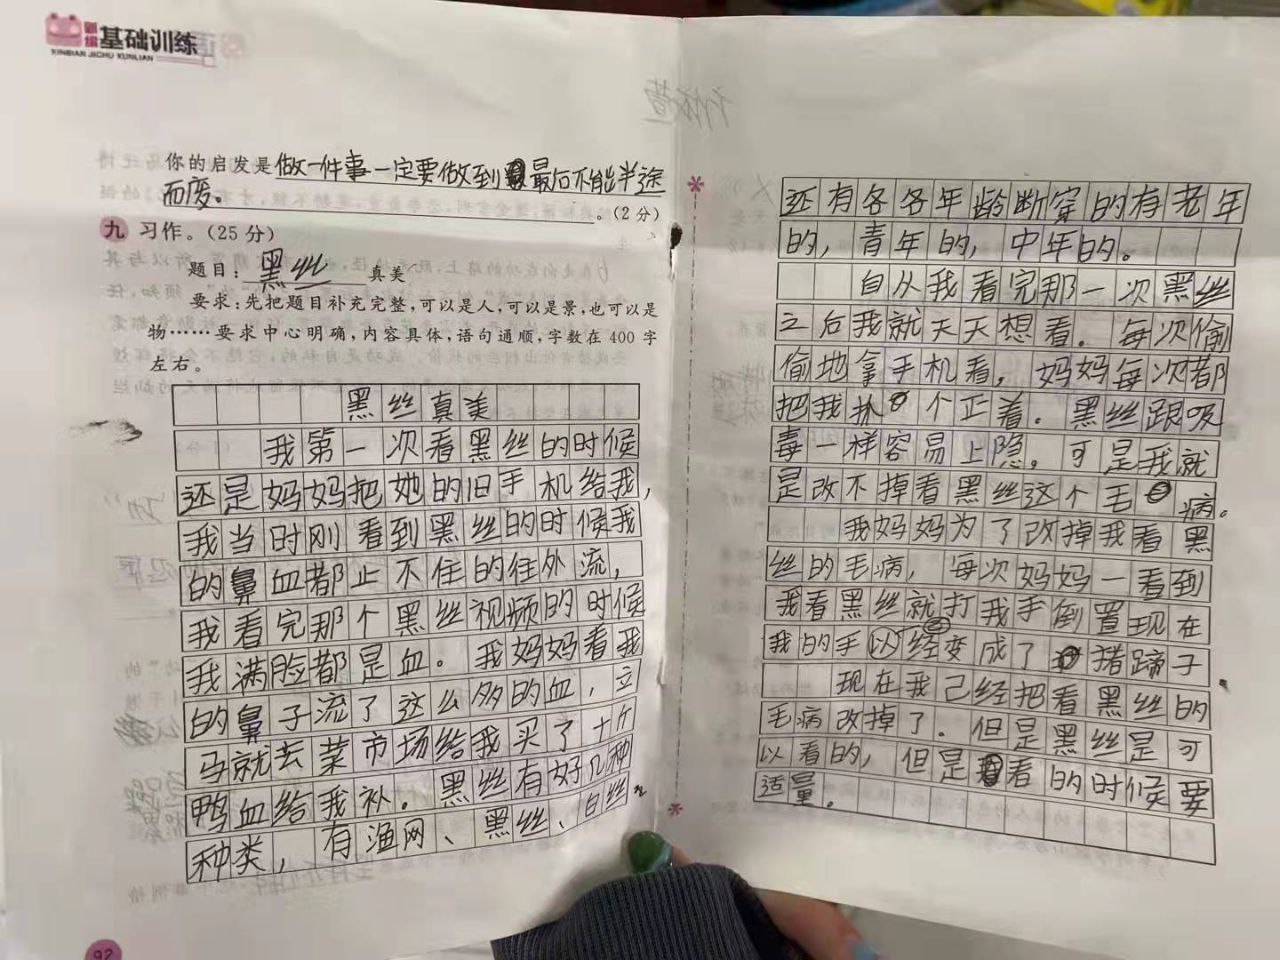 新编基础训练
XINBIAN JICHU XUNLIAN
你的启发是做一件事一定要做到最后不能半途
而废。。(2分)
九 习作。(25分)
题目:黑丝真美
要求:先把题目补充完整,可以是人,可以是景,也可以是
物……要求中心明确,内容具体,语句通顺,字数在400字
左右。
黑丝真美
我第一次看黑丝的时候
还是妈妈把她的旧手机给我,
我当时刚看到黑丝的时候我
的鼻血都止不住的往外流,
我看完那个黑丝视频的时候
我满脸都是血。我妈妈看我
的鼻子流了这么多的血,立
马就去菜市场给我买了十个
鸭血给我补。黑丝有好几种
种类,有渔网、黑丝、白丝
还有各各年龄断穿的有老年
的,青年的,中年的。
自从我看完那一次黑丝
之后我就天天想看。每次偷
偷地拿手机看,妈妈每次都
把我抓个正着。黑丝跟吸
毒一样容易上隐,可是我就
是改不掉看黑丝这个毛病。
我妈妈为了改掉我看黑
丝的毛病,每次妈妈一看到
我看黑丝就打我手倒置现在
我的手以经变成了猪蹄子
现在我己经把看黑丝的
毛病改掉了。但是黑丝是可
以看的,但是看的时候要
适量。
92